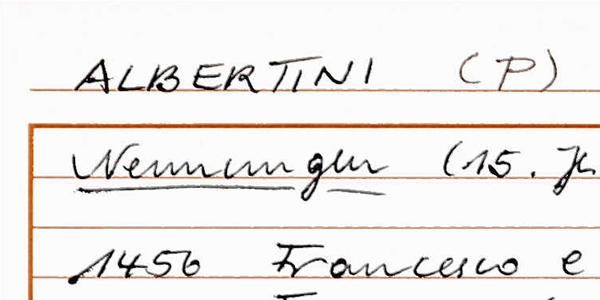 ALBERTINI (P)
Nennungen (15. Jh
1456 Francesco e